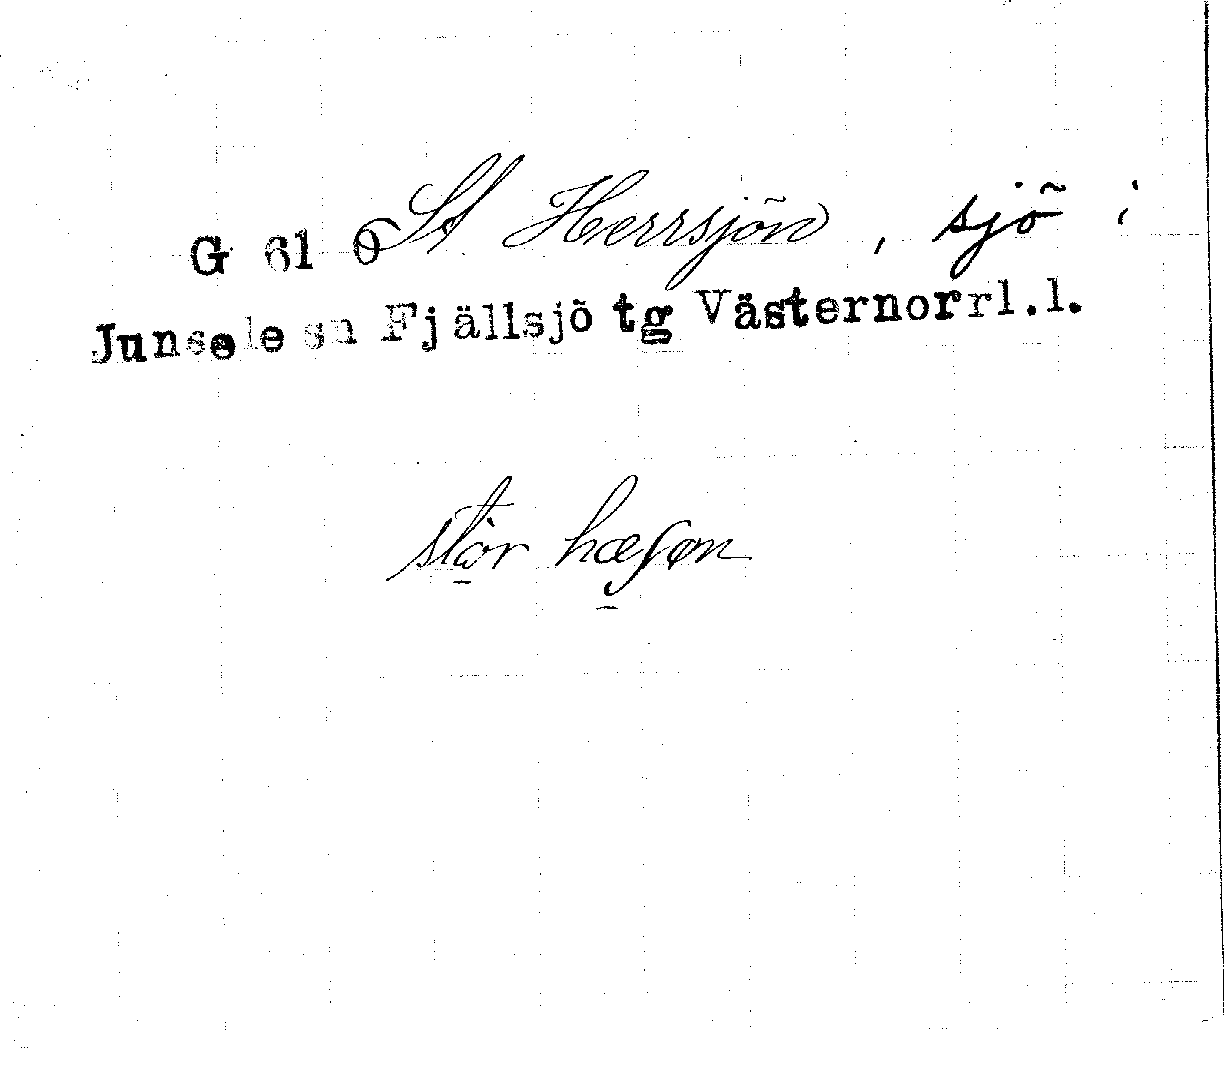 G 61 Ö St Herrsjön, sjö i
Junsele sn Fjällsjö tg Västernorrl.l.
stòr hæʃøn